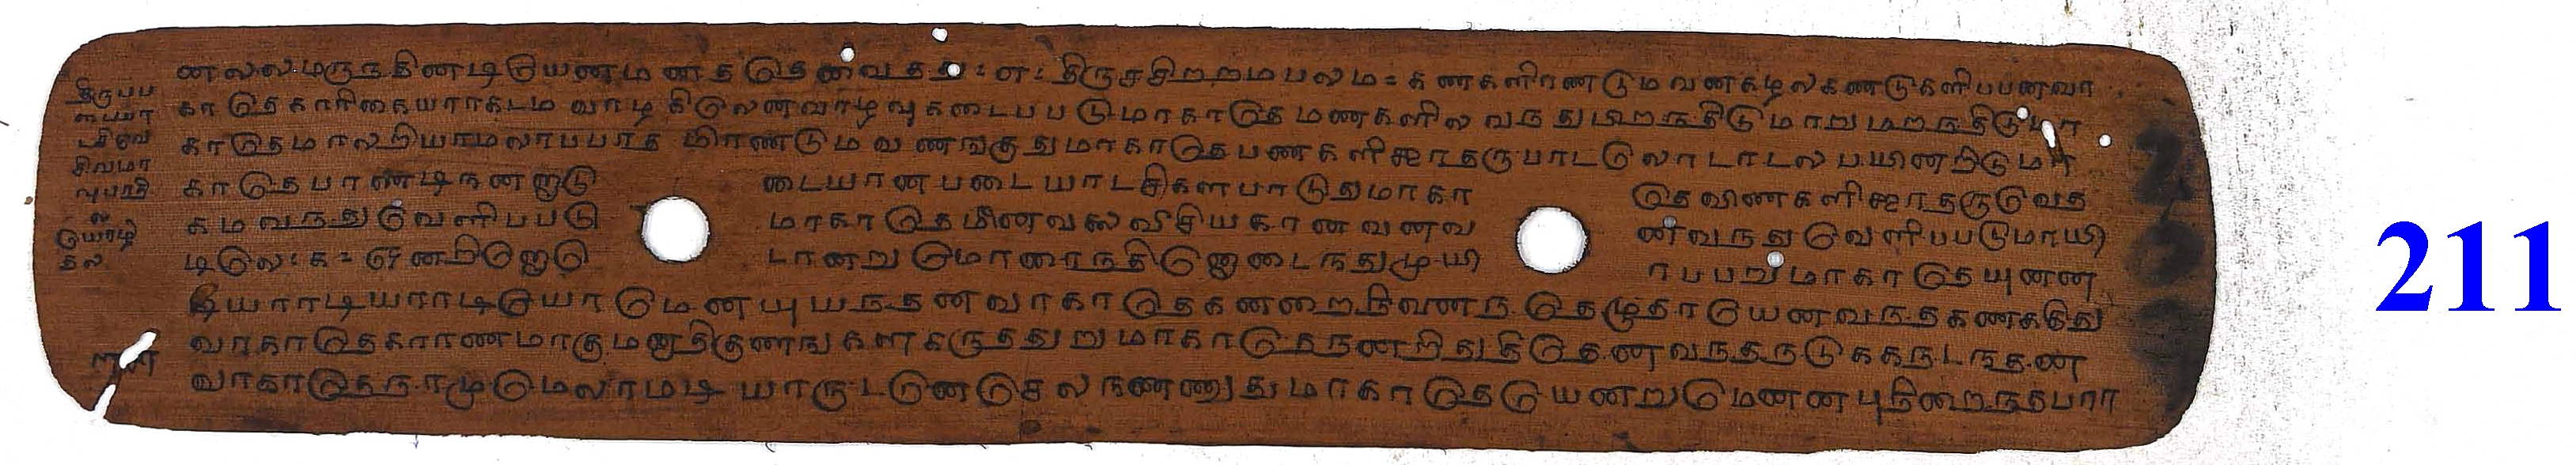 னலலமருநதினடிசெயனமனததெதவைதது: எ: திருசசிறறமபலம = கணகளிரணடுமவனகழலகணடுகளிபபனவா
காதெகாரிகையராகடமவாழகிலெனவாழவுகடைபபடுமாகாதெமணகளிலவநதுபிறநதிடுமாறுமறநதிடுமா
காதெமாலறியாமலரபபாதமிரணடுமவணஙகுதுமாகாதெபணகளிகூரதருபாடலொடாடலபயினறிடுமா
காதெபாணடிநனனாடு டையானபடையாடசிகளபாடுதுமாகா தெவிணகளிகூரதருவெத
கமவநதுவெளிபபடு மாகாதெமீனவலைவீசியகானவனவ னவநதுவெளிபபடுமாயி
டிலெ: க = ஒனறினொடு டொனறுமொரைநதினொடைநதுமுயி ரபபறுமாகாதெயுனன
டியாரடியாரடியொமெனயுயநதனவாகாதெகனறைநினைநதெழுதாயெனவநதகணககிது
வாகாதெகாரணமாகுமனாதிகுணஙகளகருததுறுமாகாதெநனறிதுதீதெனவநதநடுககநடநதன
வாகாதெநாமுமெலாமடியாருடனெசெலநணணுதுமாகாதெயெனறுமெனனபுநிறைநதபரா